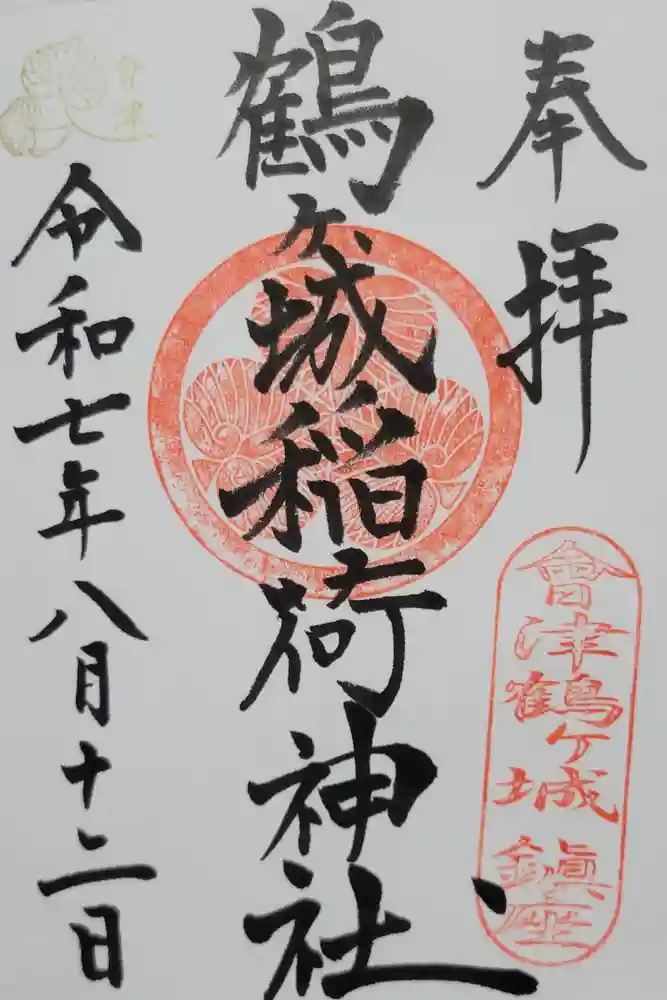 奉拝
會津鶴ヶ城鎮座
鶴ヶ城稲荷神社
會津
令和七年八月十二日